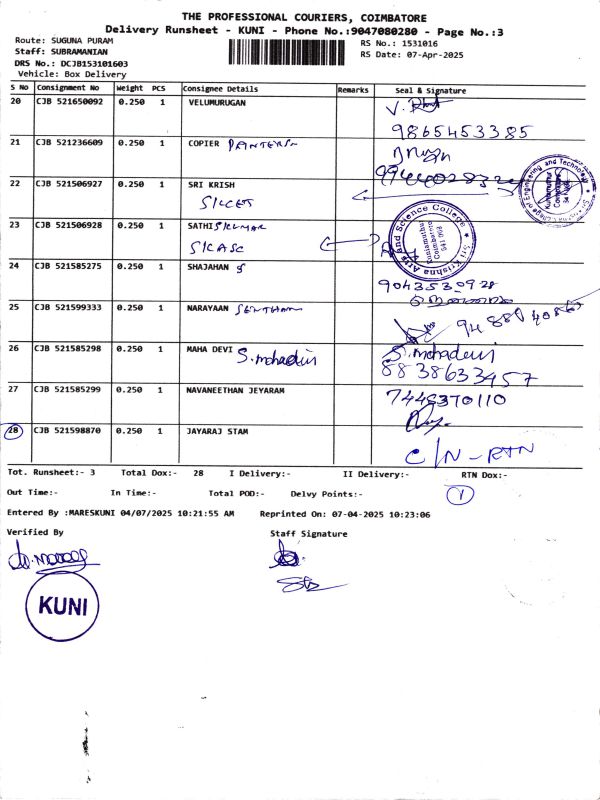 THE PROFESSIONAL COURIERS, COIMBATORE
Delivery Runsheet - KUNI - Phone No.:9047080280 - Page No.:3
Route: SUGUNA PURAM
Staff: SUBRAMANIAN
DRS No.: DCJB153101603
Vehicle: Box Delivery
RS No.: 1531016
RS Date: 07-Apr-2025
S No Consignment No Weight PCS Consignee Details Remarks Seal & Signature
20 CJB 521650092 0.250 1 VELUMURUGAN
9865453385
21 CJB 521236609 0.250 1 COPIER
22 CJB 521506927 0.250 1 SRI KRISH
SKCET
23 CJB 521506928 0.250 1 SATHISKUMAR
SKASC
Sri Krishna Arts and Science College
Kuniamuthur
Coimbatore
641 008
24 CJB 521585275 0.250 1 SHAJAHAN S
9043530928
25 CJB 521599333 0.250 1 NARAYAAN
26 CJB 521585298 0.250 1 MAHA DEVI S.mahadevi S.mahadevi
8838633457
27 CJB 521585299 0.250 1 NAVANEETHAN JEYARAM 7448370110
28 CJB 521598870 0.250 1 JAYARAJ STAM
C/N-RTN
Tot. Runsheet:- 3 Total Dox:- 28 I Delivery:- II Delivery:- RTN Dox:-
Out Time:- In Time:- Total POD:- Delvy Points:- 1
Entered By :MARESKUNI 04/07/2025 10:21:55 AM Reprinted On: 07-04-2025 10:23:06
Verified By Staff Signature
KUNI